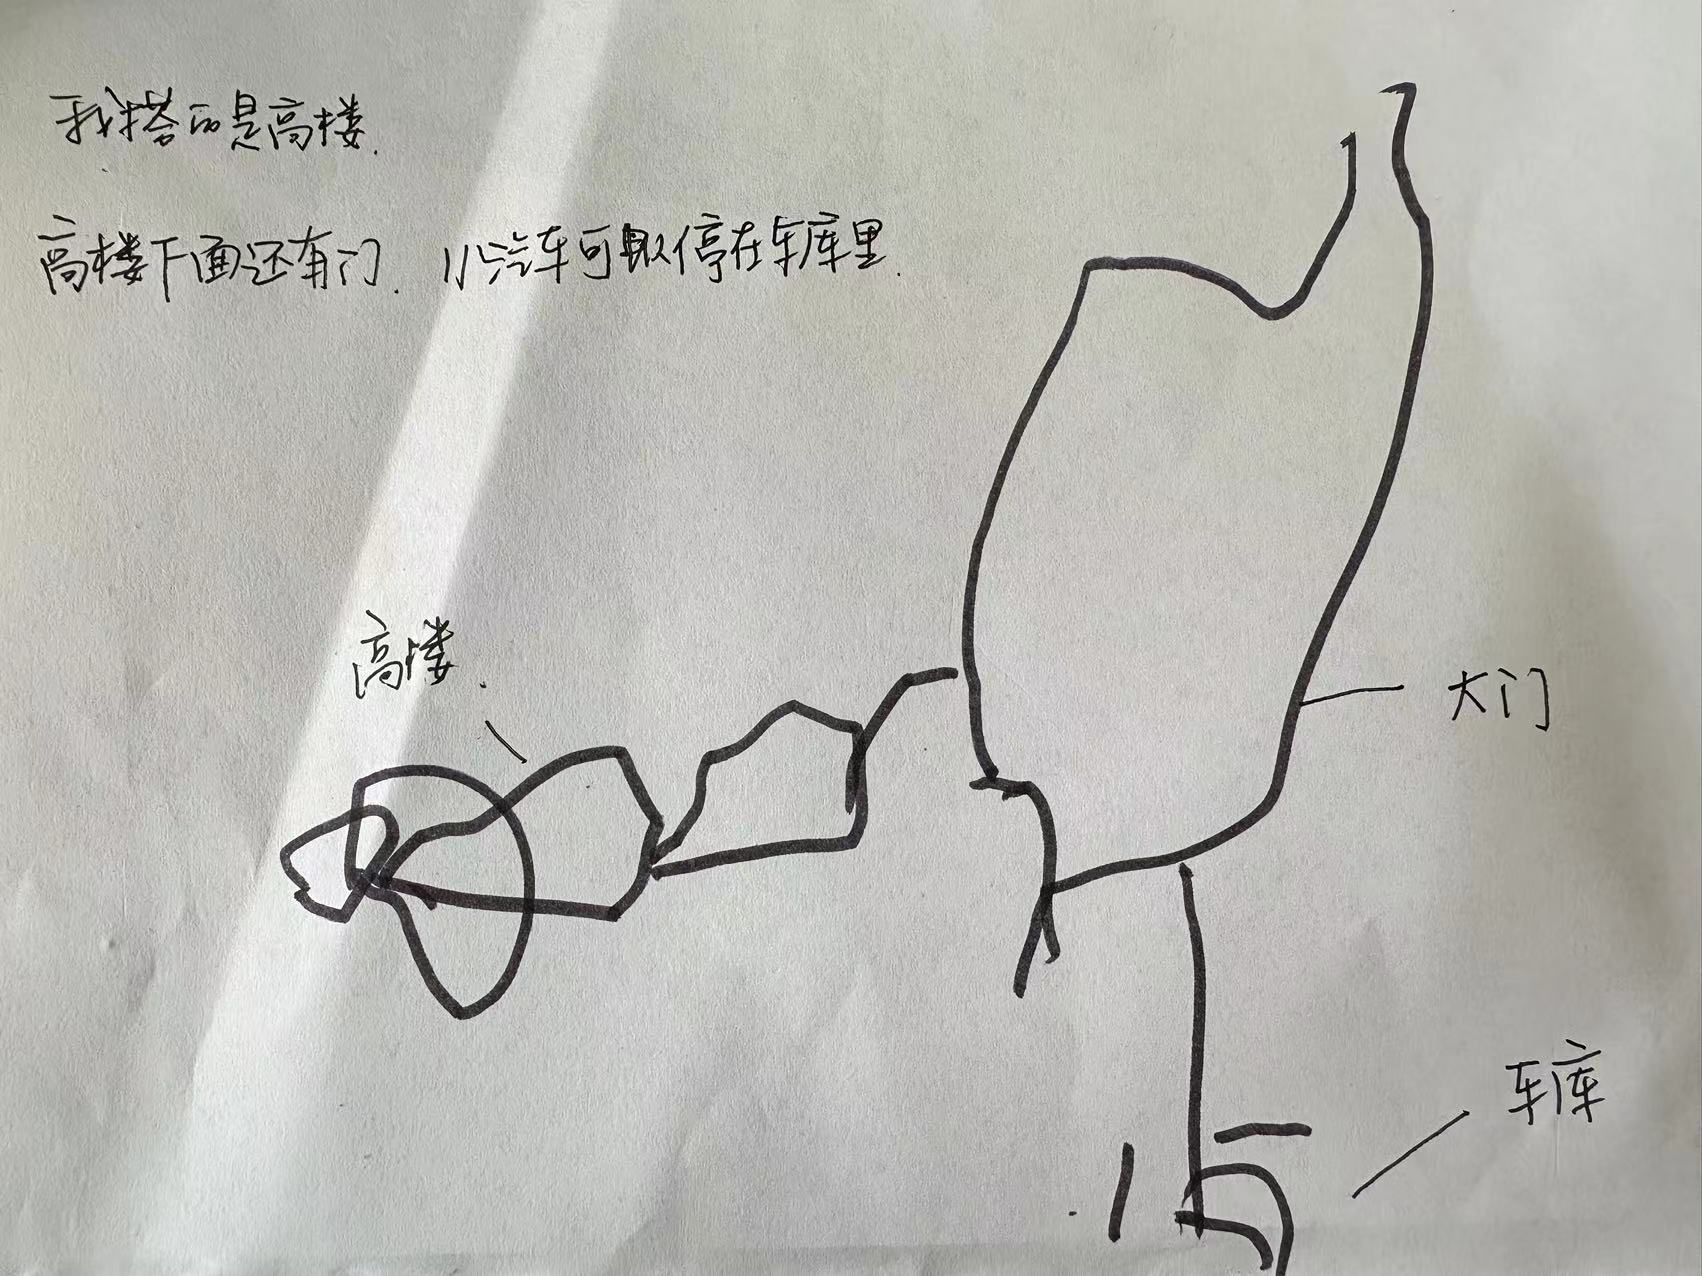 我搭的是高楼.
高楼下面还有门. 小汽车可以停在车库里.
高楼.
大门
车库